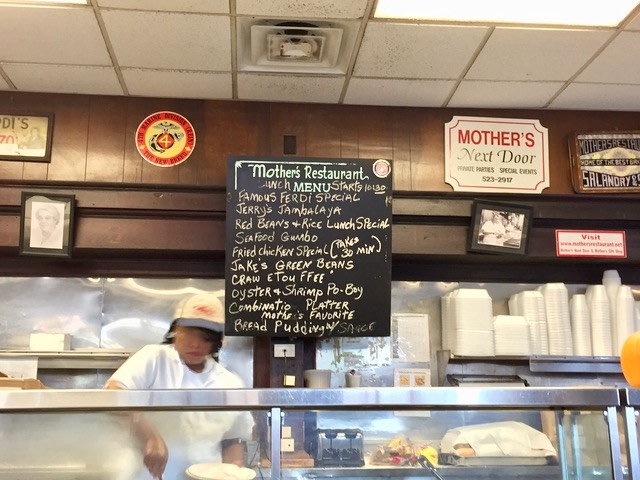 Mother's Restaurant
LUNCH MENU Starts 10:30
FAMOUS FERDI SPECIAL
JERRY'S JAMBALAYA
RED BEANS & RICE LUNCH SPECIAL
SEAFOOD GUMBO
FRIED CHICKEN SPECIAL (TAKES 30 MIN)
JAKE'S GREEN BEANS
CRAW ETOUFFEE
OYSTER & SHRIMP PO-BOY
COMBINATIO PLATTER
MOTHER'S FAVORITE
BREAD PUDDING W/ SAUCE
MOTHER'S
Next Door
PRIVATE PARTIES SPECIAL EVENTS
523-2917
MOTHER'S RESTAURANT
HOME OF THE BEST
Visit
www.mothersrestaurant.net
RDI'S
4